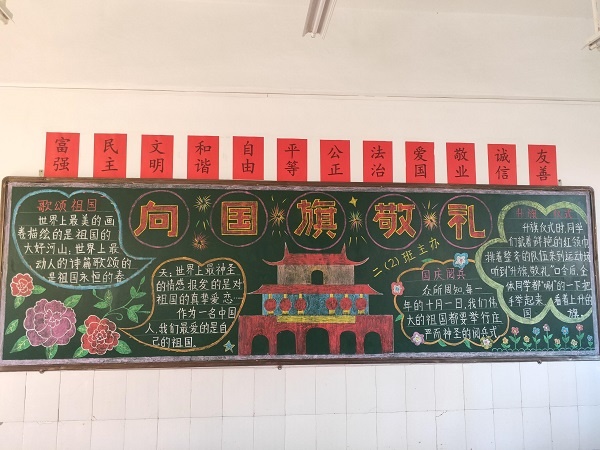 富强
民主
文明
和谐
自由
平等
公正
法治
爱国
敬业
诚信
友善
向国旗敬礼
二(2)班主办
歌颂祖国
世界上最美的画
卷描绘的是祖国的
大好河山,世界上最
动人的诗篇歌颂的
是祖国永恒的春
天;世界上最神圣
的情感报发的是对
祖国的真挚爱恋
作为一名中国
人,我们最爱的是自
己的祖国.
国庆阅兵
众所周知,每一
年的十月一日,我们伟
大的祖国都要举行庄
严而神圣的阅兵式
升旗仪式
升旗仪式时,同学
们戴着鲜艳的红领巾
排着整齐的队伍来到运动场
听到"升旗,敬礼"口令后,全
体同学都"唰"的一下把
手举起来,看着上升的
国旗